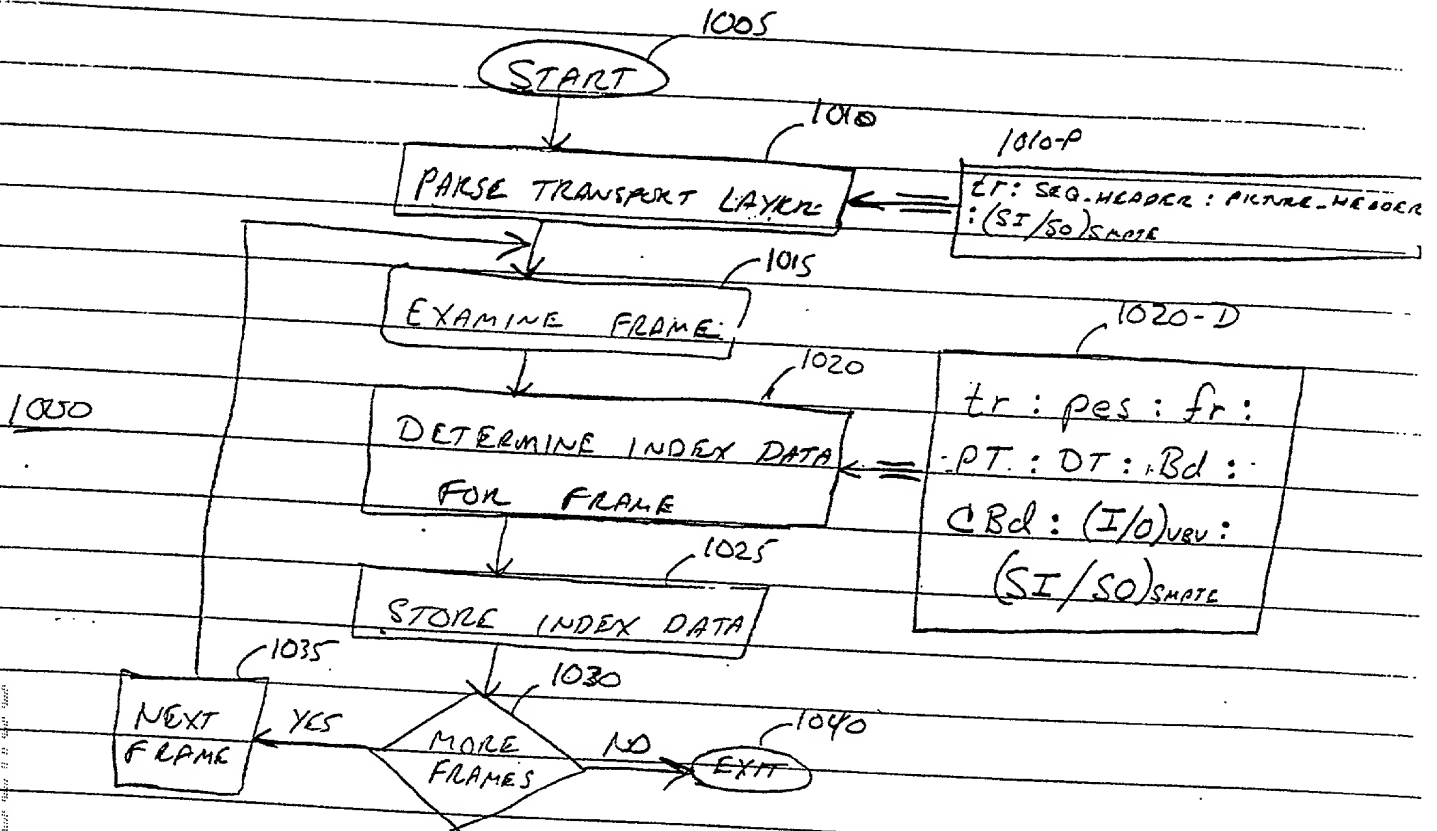 1005
START
1010
1010-P
PARSE TRANSPORT LAYER
tr: SEQ-HEADER : PICTURE-HEADER
: (SI/SO)SMPTE
1015
EXAMINE FRAME
1020-D
1020
tr : pes : fr :
1000
DETERMINE INDEX DATA
FOR FRAME
PT : DT : Bd :
CBd : (I/O)VBV :
(SI/SO)SMPTE
1025
STORE INDEX DATA
1035
1030
NEXT
FRAME
YES
MORE
FRAMES
NO
1040
EXIT